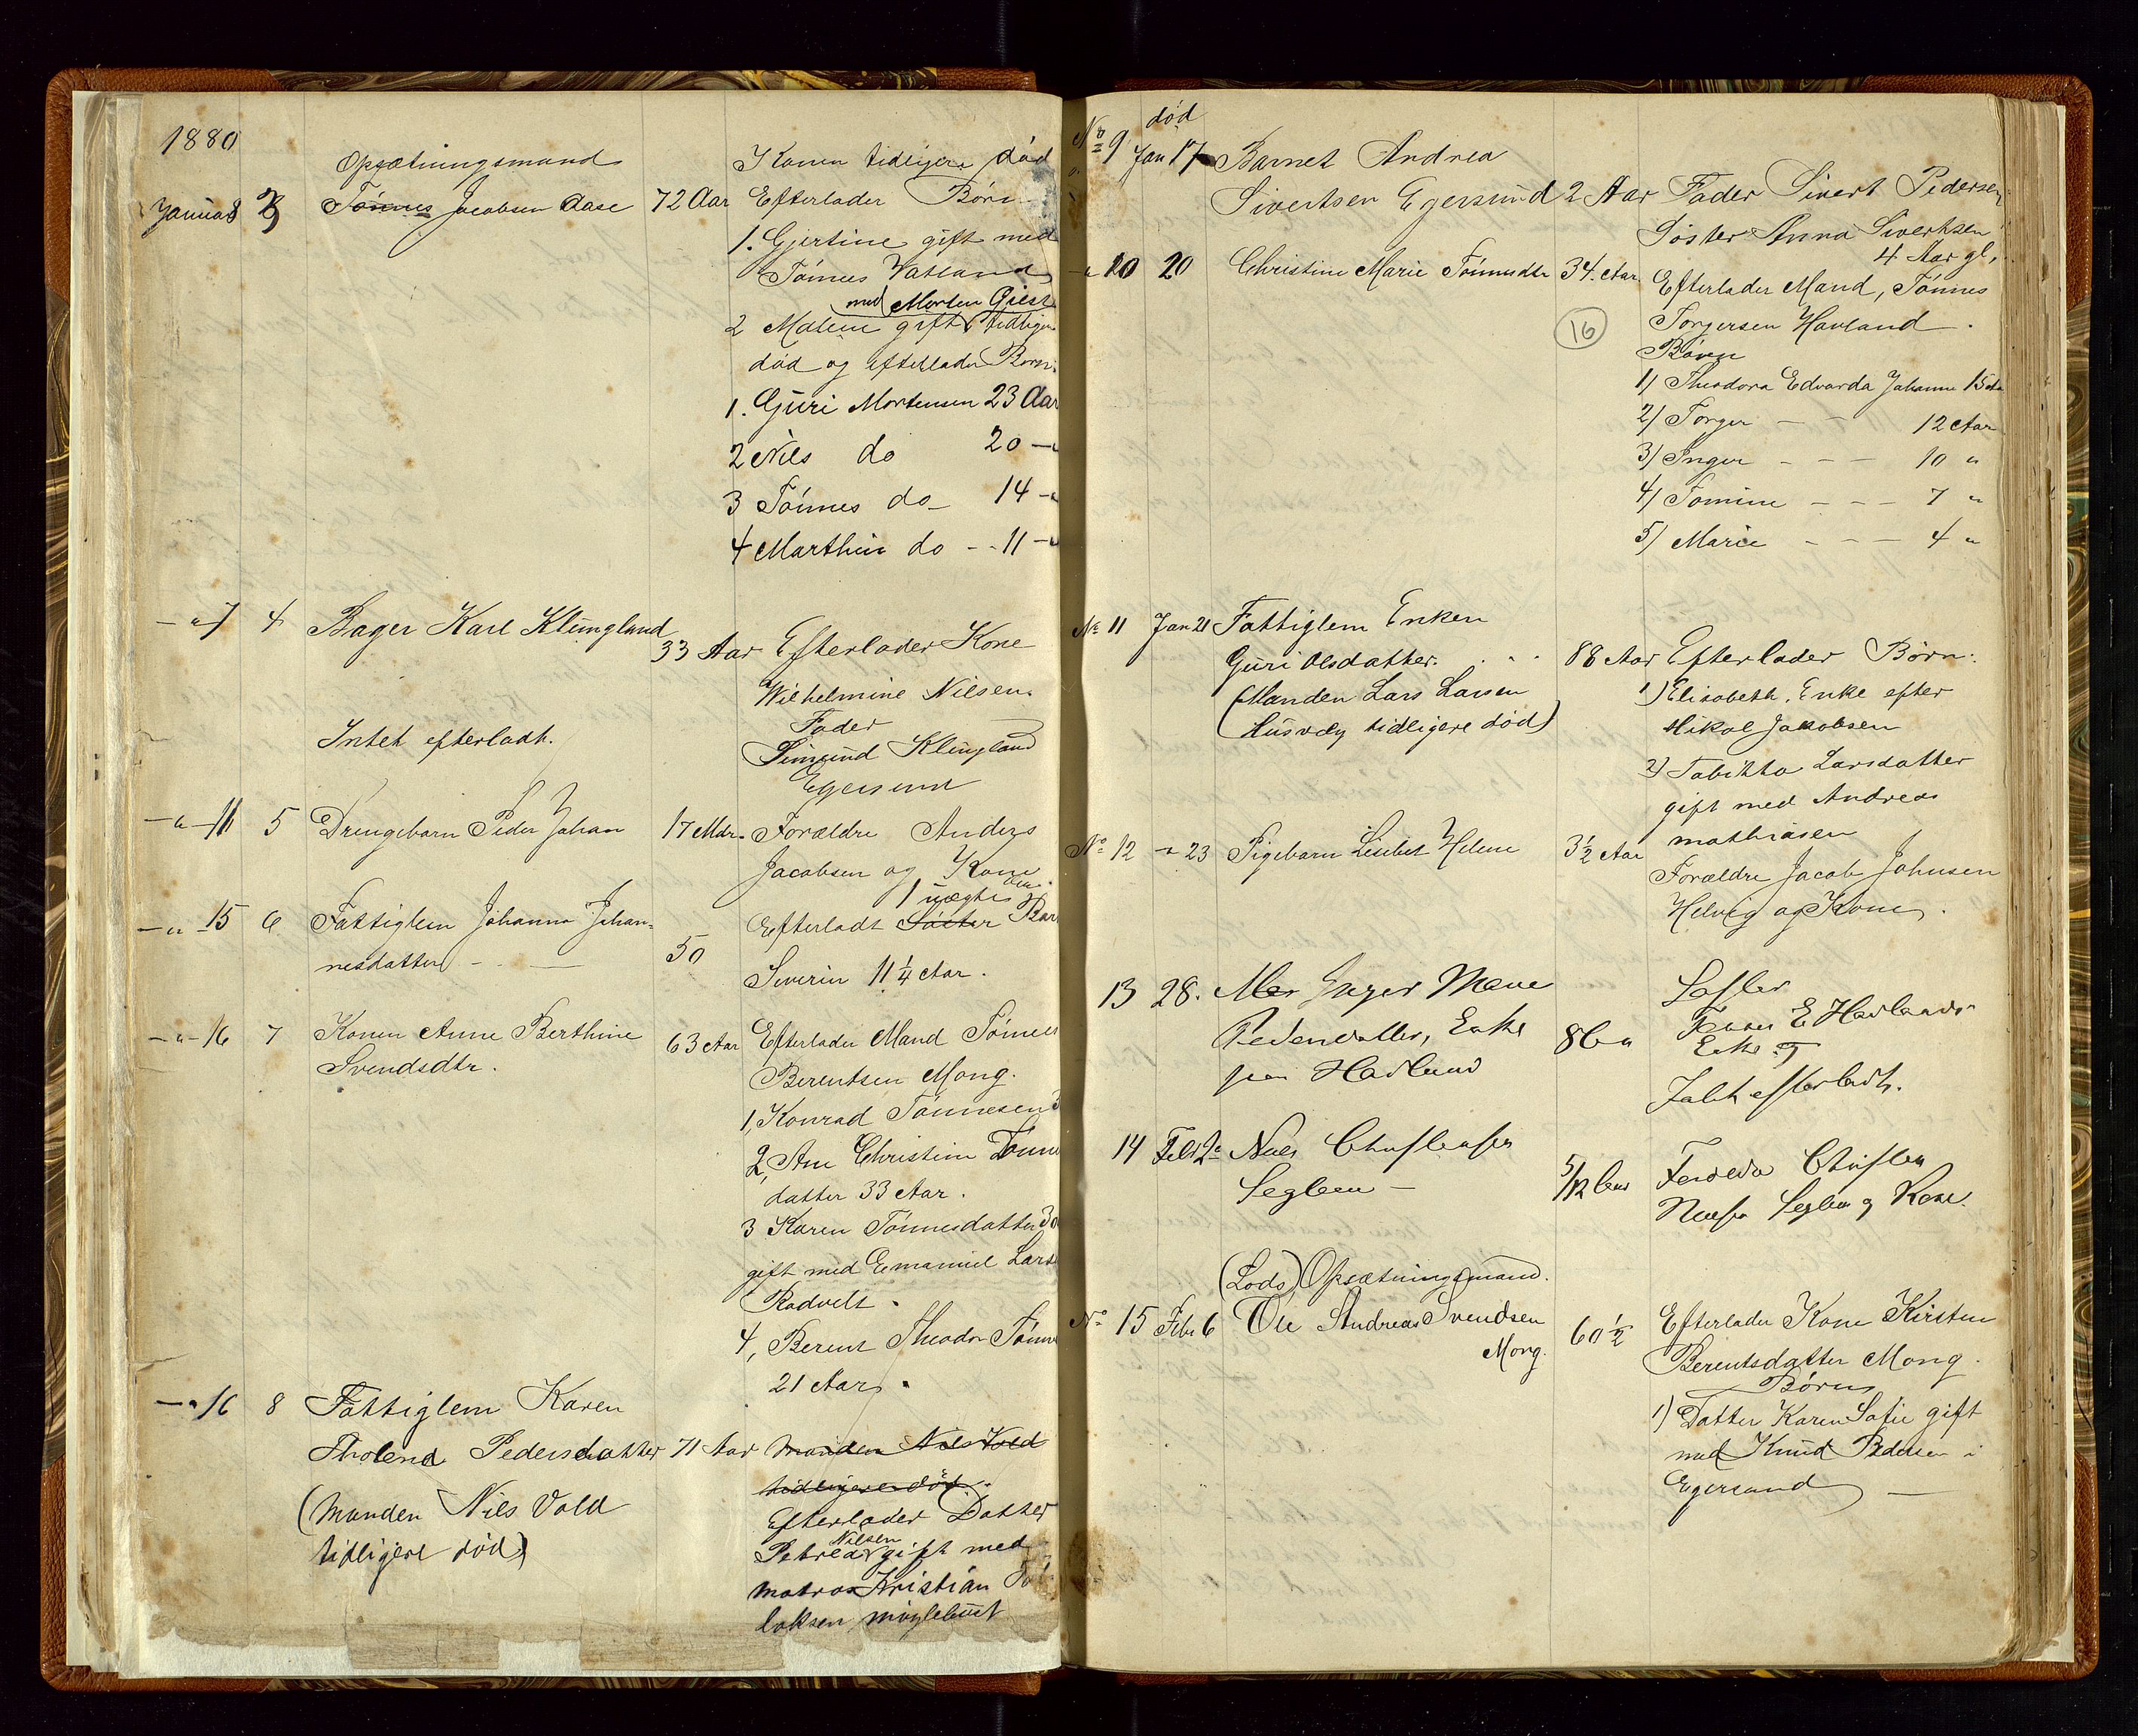 1880
Opsætningsmand
Januar 8 3 Tönnes Jacobsen Aase 72 Aar
Konen tidligere død
Efterlader Börn
1. Gjertine gift med
Tönnes Vatland
med Morten Giest
2 Malene gift tidligere
død og efterlader Børn
1. Guri Mortensen 23 Aar
2 Nils do 20 -"
3 Tönnes do - 14 -"
4 Marthin do - - 11 -"
- " 7 4 Bager Karl Klungland
33 Aar Efterlader Kone
Wilhelmine Nilsen.
Fader
Intet efterladt.
Simund Klungland
Egersund
- " - 11 5 Drengebarn Peder Johan 17 Mdr. Forældre Anders
Jacobsen og Kone
1 uægte
- " - 15 6 Fattiglem Johanna Johan=
nesdatter - - 50
Efterladt Söster Bar
Severin 11 1/4 Aar.
- " - 16 7 Konen Anne Berthine 63 Aar
Svendsdtr.
Efterlader Mand Tönnes
Berentsen Mong.
1, Konrad Tönnesen 3
2, Ane Christine Tönne
datter 33 Aar.
3 Karen Tönnesdatter 30
gift med Emanuel Lars
Rodvelt.
4, Berent Theodor Tönne
21 Aar.
- " 16 8 Fattiglem Karen
Tholena Pedersdatter 71 Aar
(Manden Nils Vold
tidligere død)
Manden Nils Vold
tidligere død.
Efterlader Datter
Nilsen
Petrea gift med
Matros Kristian
laksen, Møglebust
død
No 9 Jan 17 Barnet Andrea
Sivertsen Egersund 2 Aar Fader Sivert Pedersen
Søster Anna Sivertsen
4 Aar gl.
- " 10 20 Christine Marie Tönnesdtr 34. Aar. Efterlader Mand, Tönnes
16
Torgersen Havland.
Børn
1) Theodora Edvarda Johanne 15 Aar
2) Torger - - 12 Aar
3) Inger - - - 10 "
4) Tomine - - - 7 "
5) Marie - - - 4 "
No 11 Jan 21 Fattiglem Enken
Guri Olsdatter. . . . 88 Aar Efterlader Børn:
(Manden Lars Larsen
Husvæg tidligere død)
1) Elisabeth, Enke efter
Mikal Jakobsen
2) Tabitha Larsdatter
gift med Andreas
Mathiasen
No 12 - " 23 Pigebarn Lisebet Helene 3 1/2 Aar
Forældre Jacob Johnsen
Helvig og Kone.
13 28. Inger Marie
Pedersdatter, Enke 86 "
fra Havland
Enke
Intet efterladt.
14 Febr 2 Niels Christensen
Seglem - 5/12 Aar
Forældre Christen
Seglem og Kone.
(Lods) Opsætningsmand.
No 15 Febr 6 Ole Andreas Svendsen 60 1/2
Mong.
Efterlader Kone Kirsten
Berentsdatter Mong.
Børn
1) Datter Karen Sofie gift
med Knud Pedersen i
Egersund -